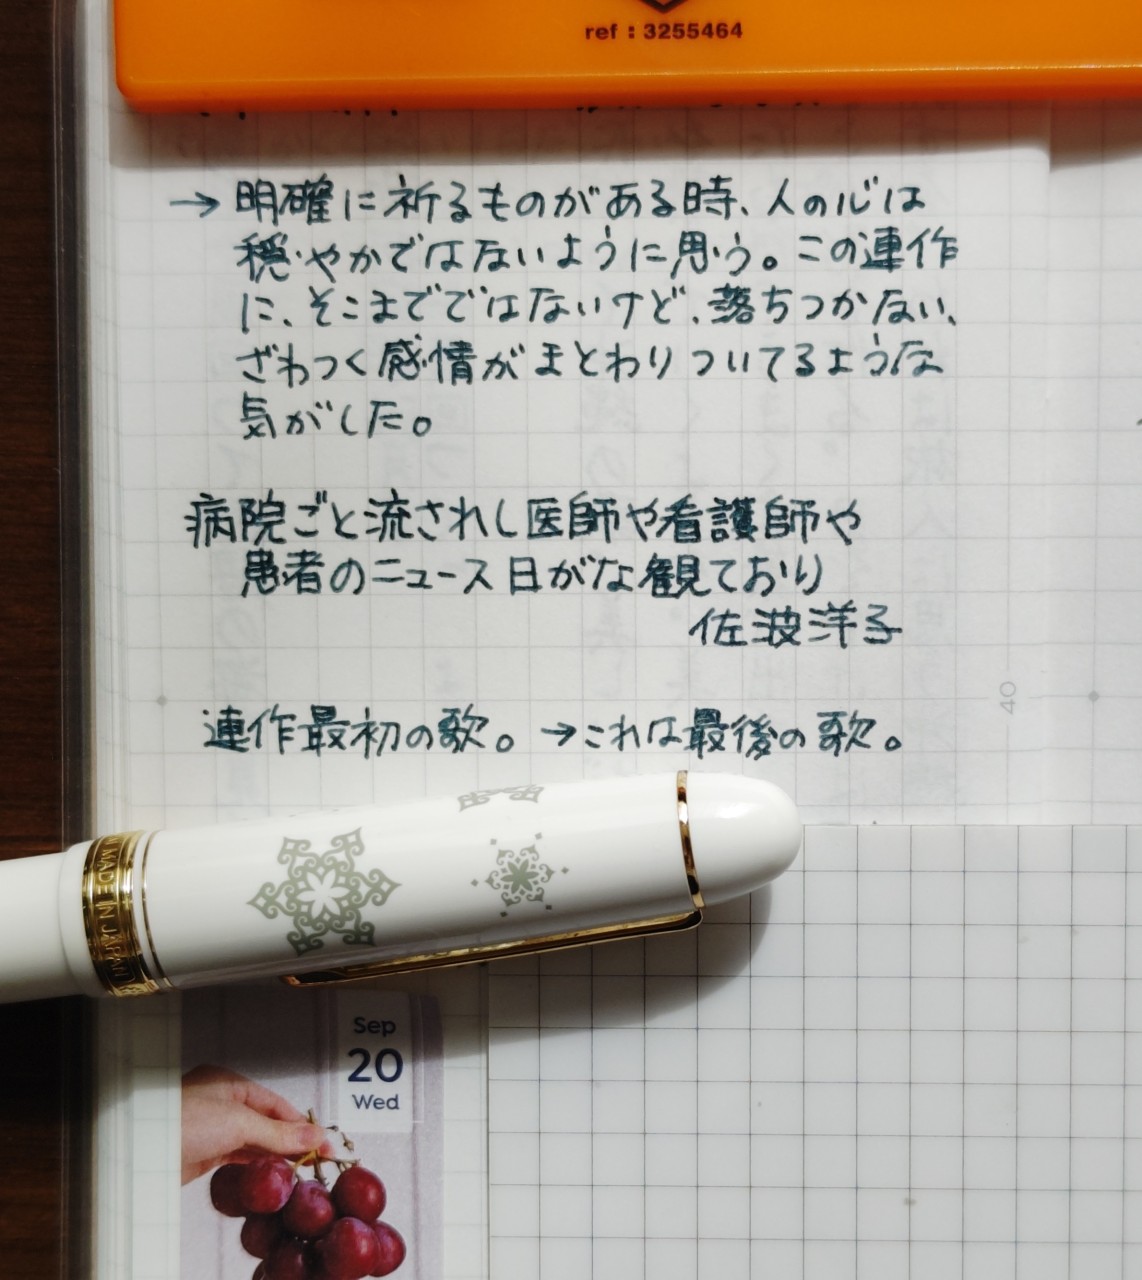 ref : 3255464
→ 明確に祈るものがある時、人の心は
穏やかではないように思う。この連作
に、そこまでではないけど、落ちつかない、
ざわつく感情がまとわりついてるような
気がした。
病院ごと流されし医師や看護師や
患者のニュース日がな観ており
佐波洋子
連作最初の歌。→これは最後の歌。
40
MADE IN JAPAN
Sep
20
Wed